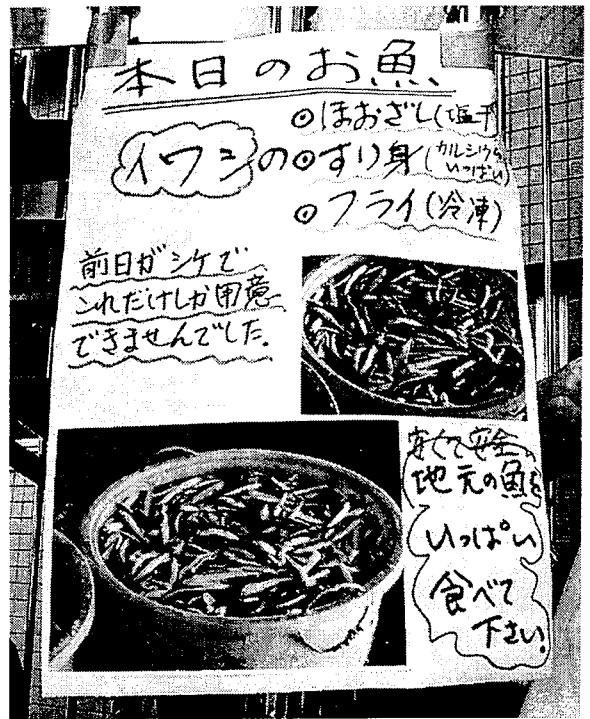 本日のお魚
イワシの
◎ほおざし(塩干
◎すり身(カルシウム
いっぱい)
◎フライ(冷凍)
前日がシケで
これだけしか用意
できませんでした。
安くて安全、
地元の魚を
いっぱい
食べて
下さい!